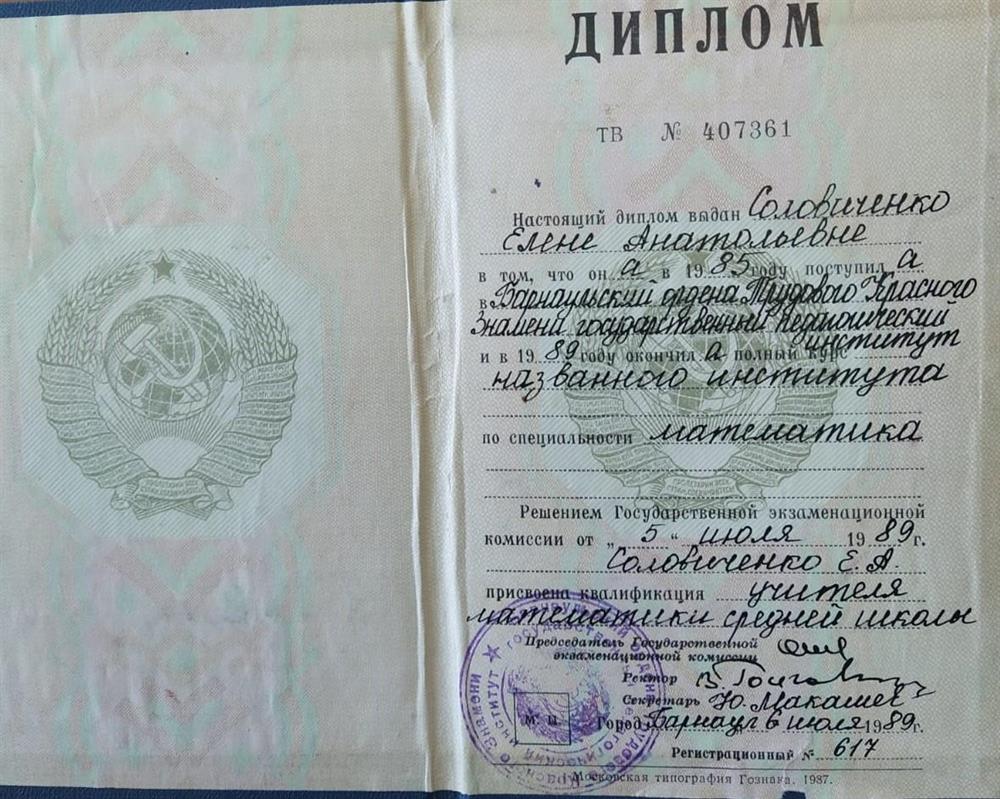 ДИПЛОМ
ТВ № 407361
Настоящий диплом выдан Соловиченко
Елене Анатольевне
в том, что он а в 1985 году поступил а
в Барнаульский ордена Трудового Красного
Знамени государственный педагогический
институт
и в 1989 году окончил а полный курс
названного института
по специальности математика
Решением Государственной экзаменационной
комиссии от „ 5 “ июля 1989 г.
Соловиченко Е. А.
присвоена квалификация учителя
математики средней школы
Председатель Государственной
экзаменационной комиссии
Ректор
Секретарь Ю. Макашев
М. П. Город Барнаул 6 июля 1989 г.
Регистрационный № 617
Московская типография Гознака. 1987.